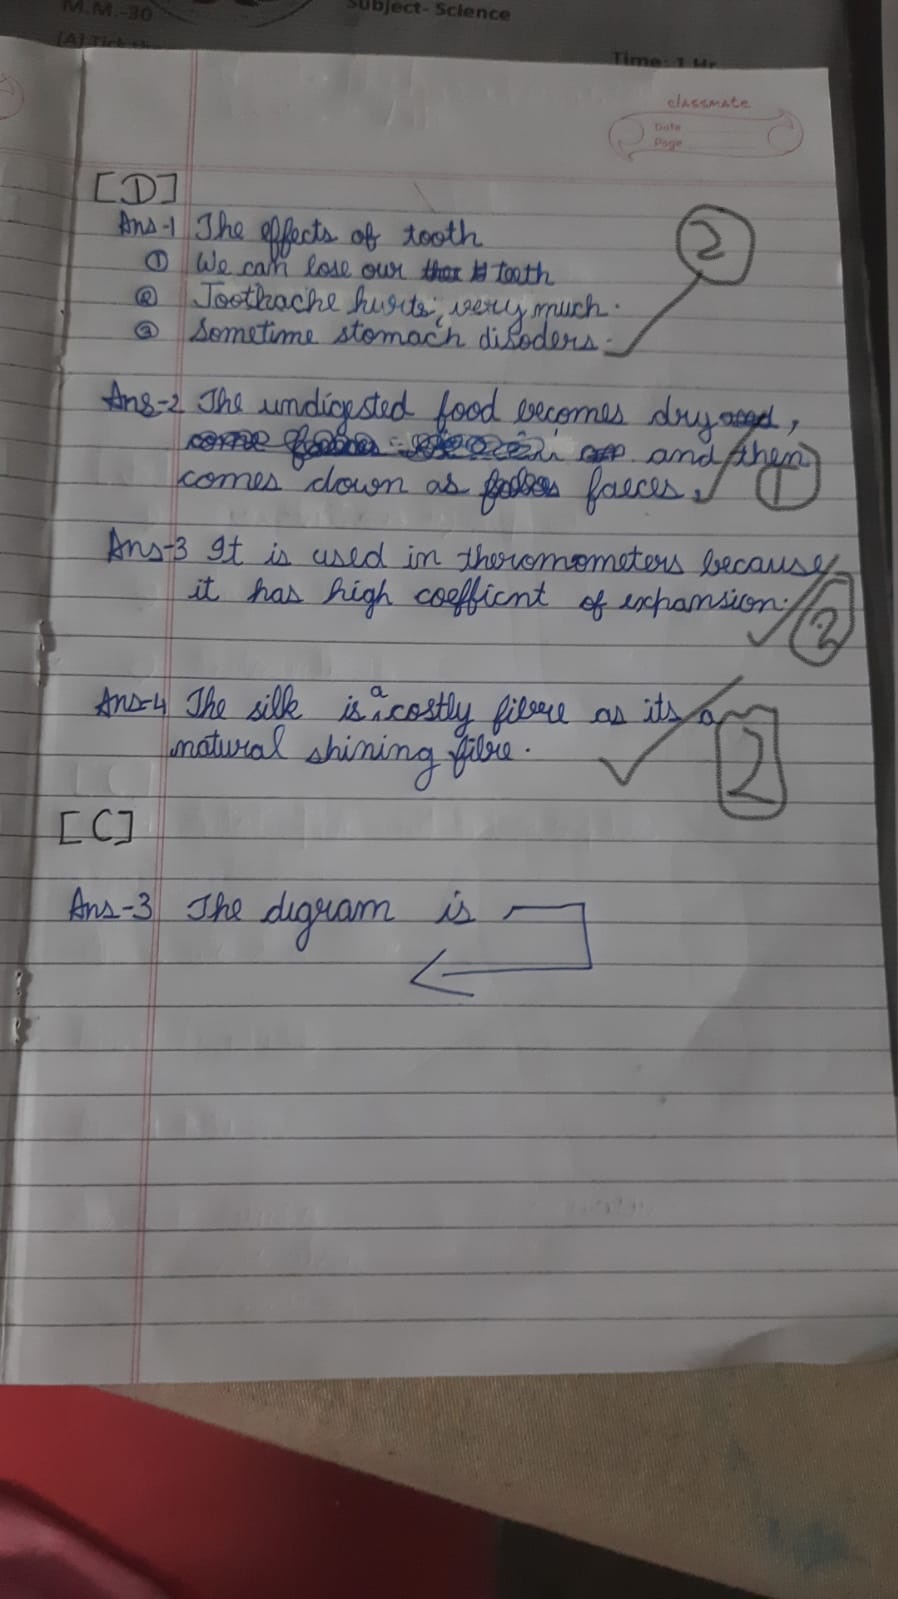 M.M.-30
Subject- Science
Time: 1 Hr
classmate
Date
Page
[D]
Ans-1 The effects of tooth
① We can lose our teeth
② Toothache hurts, very much.
③ Sometime stomach disoders.
2
Ans-2 The undigested food becomes dry,
and then
comes down as faeces.
1
Ans-3 It is used in theromometers because
it has high coefficnt of expansion.
2
Ans-4 The silk is a costly fibre as its a
natural shining fibre.
2
[C]
Ans-3 The digram is